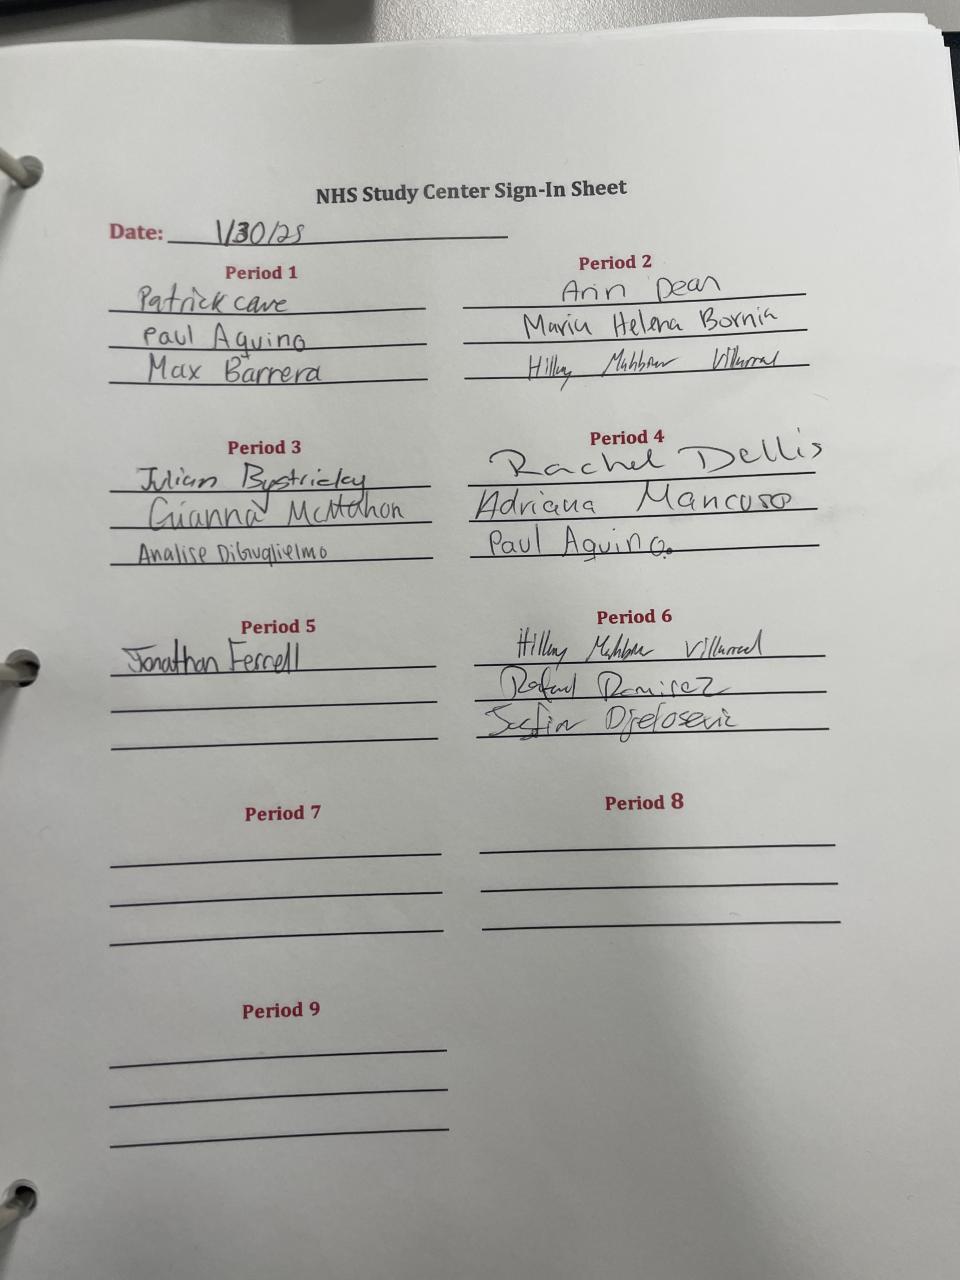 NHS Study Center Sign-In Sheet
Date: 1/30/25
Period 1
Patrick cave
Paul Aquino
Max Barrera
Period 2
Ann Dean
Maria Helena Bornia
Hillary Villarreal
Period 3
Julian Bystricky
Gianna McMahon
Analise DiGuglielmo
Period 4
Rachel Dellis
Adriana Mancuso
Paul Aquino.
Period 5
Jonathan Ferrell
Period 6
Hillary Villarreal
Rafael Ramirez
Justin Djelosevic
Period 7
Period 8
Period 9